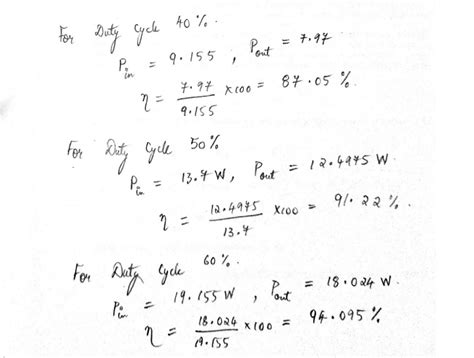 For Duty Cycle 40%.
Pin = 9.155, Pout = 7.97
η = 7.97/9.155 x100 = 87.05 %.
For Duty Cycle 50%
Pin = 13.7 W, Pout = 12.4975 W.
η = 12.4975/13.7 x100 = 91.22 %.
For Duty Cycle 60%.
Pin = 19.155 W, Pout = 18.024 W.
η = 18.024/19.155 x100 = 94.095 %